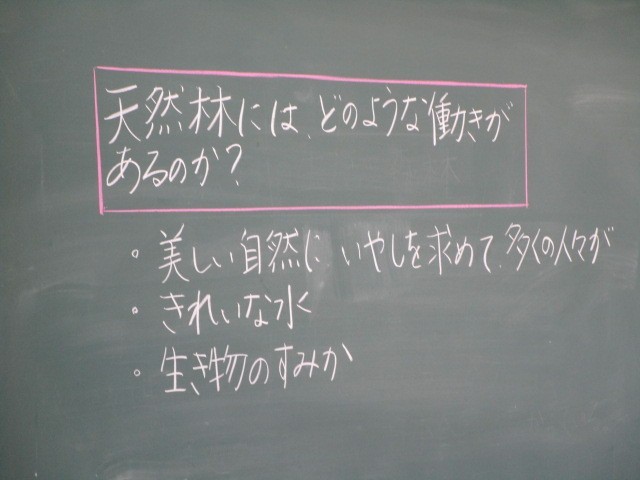 天然林には、どのような働きが
あるのか?
・美しい自然に いやしを求めて、多くの人々が
・きれいな水
・生き物のすみか